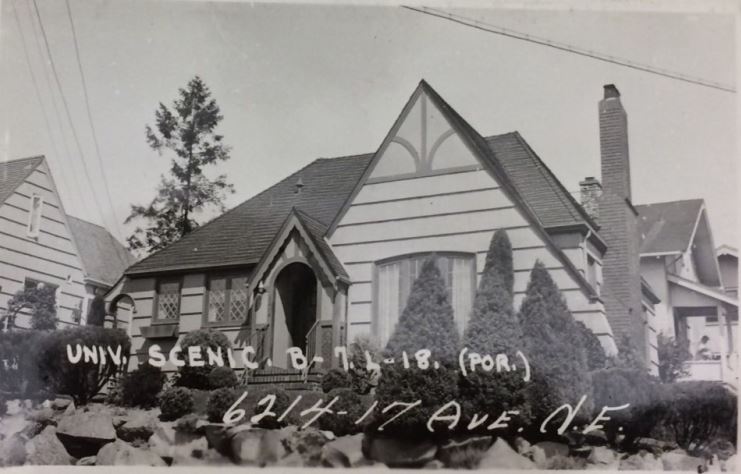 UNIV. SCENIC. B-7. L-18. (POR.)
6214-17 AVE. N.E.